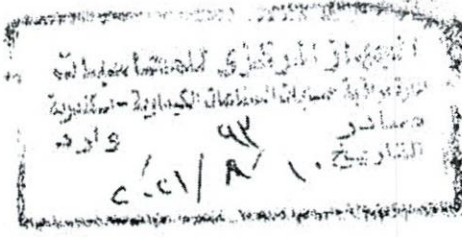 الجهاز المركزي للمحاسبات
إدارة مراقبة حسابات الصناعات الكيماوية - اسكندرية
صادر ٩٢ وارد
التاريخ ١٠ / ٨ / ٢٠٢١